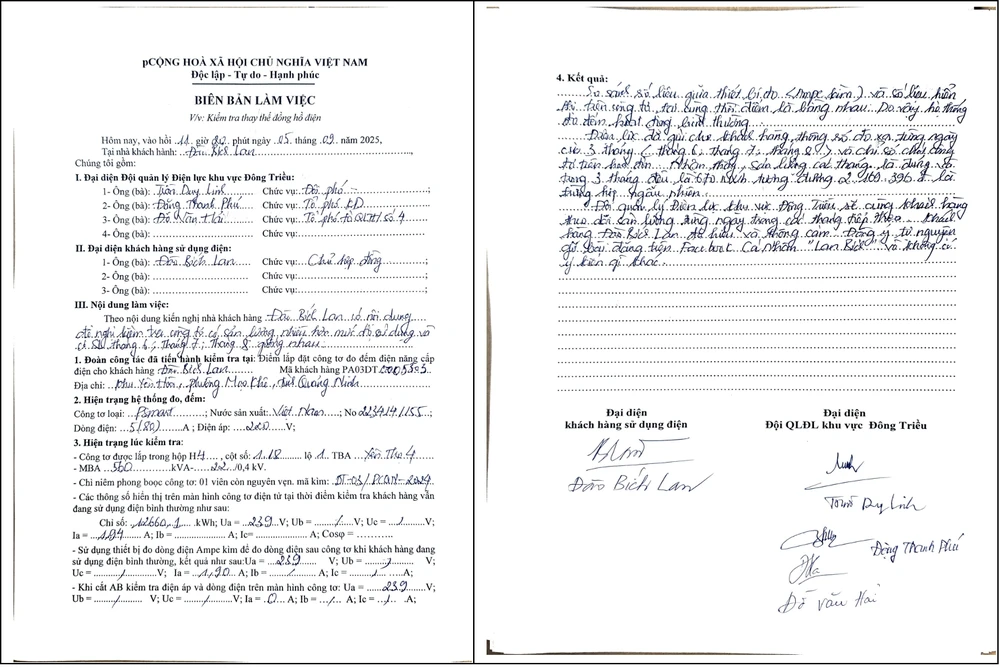 pCỘNG HOÀ XÃ HỘI CHỦ NGHĨA VIỆT NAM
Độc lập - Tự do - Hạnh phúc
BIÊN BẢN LÀM VIỆC
V/v: Kiểm tra thay thế đồng hồ điện
Hôm nay, vào hồi 11 giờ 20 phút ngày 05 tháng 09 năm 2025,
Tại nhà khách hành: Đào Bích Lan
Chúng tôi gồm:
I. Đại diện Đội quản lý Điện lực khu vực Đông Triều:
1- Ông (bà): Trần Duy Linh Chức vụ: Đội phó
2- Ông (bà): Đồng Thanh Phú Chức vụ: Tổ phó KD
3- Ông (bà): Đỗ Văn Hải Chức vụ: Tổ phó Tổ QLTH số 4
4- Ông (bà): Chức vụ:
II. Đại diện khách hàng sử dụng điện:
1- Ông (bà): Đào Bích Lan Chức vụ: Chủ hợp đồng
2- Ông (bà): Chức vụ:
3- Ông (bà): Chức vụ:
III. Nội dung làm việc:
Theo nội dung kiến nghị nhà khách hàng Đào Bích Lan có nội dung
đề nghị kiểm tra công tơ có sản lượng nhiều hơn mức độ sử dụng và
chỉ số tháng 6; tháng 7; tháng 8 giống nhau
1. Đoàn công tác đã tiến hành kiểm tra tại: Điểm lắp đặt công tơ đo đếm điện năng cấp
điện cho khách hàng Đào Bích Lan Mã khách hàng PA03DT
Địa chỉ: khu Yên Hòa, phường Mạo Khê, tỉnh Quảng Ninh
2. Hiện trạng hệ thống đo, đếm:
Công tơ loại: Psmart; Nước sản xuất: Việt Nam; No 2234141155;
Dòng điện: 5(80) A ; Điện áp: 220 V;
3. Hiện trạng lúc kiểm tra:
- Công tơ được lắp trong hộp H4, cột số: 1.18 lộ 1 TBA Yên Thọ 4
- MBA 560 kVA- 22/0,4 kV.
- Chì niêm phong booc công tơ: 01 viên còn nguyên vẹn. mã kìm: DT-03/PCQN-2024
- Các thông số hiển thị trên màn hình công tơ điện tử tại thời điểm kiểm tra khách hàng vẫn
đang sử dụng điện bình thường như sau:
Chỉ số: 12660,1 kWh; Ua = 239 V; Ub = / V; Uc = / V;
Ia = 1,94 A; Ib = / A; Ic= / A; Cosφ =
- Sử dụng thiết bị đo dòng điện Ampe kìm để đo dòng điện sau công tơ khi khách hàng đang
sử dụng điện bình thường, kết quả như sau:Ua = 239 V; Ub = / V;
Uc = / V; Ia = 1,90 A; Ib = / A; Ic = / A;
- Khi cắt AB kiểm tra điện áp và dòng điện trên màn hình công tơ: Ua = 239 V;
Ub = / V; Uc = / V; Ia = 0 A; Ib = / A; Ic = / A;
4. Kết quả:
So sánh số liệu giữa thiết bị đo (Ampe kìm) và số liệu hiển
thị trên công tơ tại cùng thời điểm là bằng nhau. Do vậy hệ thống
đo đếm hoạt động bình thường.
Điện lực đã gửi cho khách hàng thông số đo xa từng ngày
của 3 tháng (tháng 6; tháng 7; tháng 8) và chỉ số chốt công
tơ trên hóa đơn. Nhận thấy, sản lượng các tháng là đúng số
trong 3 tháng đều là 670 kWh tương đương 2.160.396 đ là
trường hợp ngẫu nhiên.
Đội quản lý Điện lực khu vực Đông Triều sẽ cùng khách hàng
theo dõi sản lượng từng ngày trong các tháng tiếp theo. Khách
hàng Đào Bích Lan đã hiểu và thông cảm. Đồng ý tự nguyện
gỡ bài đăng trên Facebook Cá Nhân "Lan Bích" và không có
ý kiến gì khác.
Đại diện
khách hàng sử dụng điện
Đào Bích Lan
Đại diện
Đội QLĐL khu vực Đông Triều
Trần Duy Linh
Đồng Thanh Phú
Đỗ Văn Hải